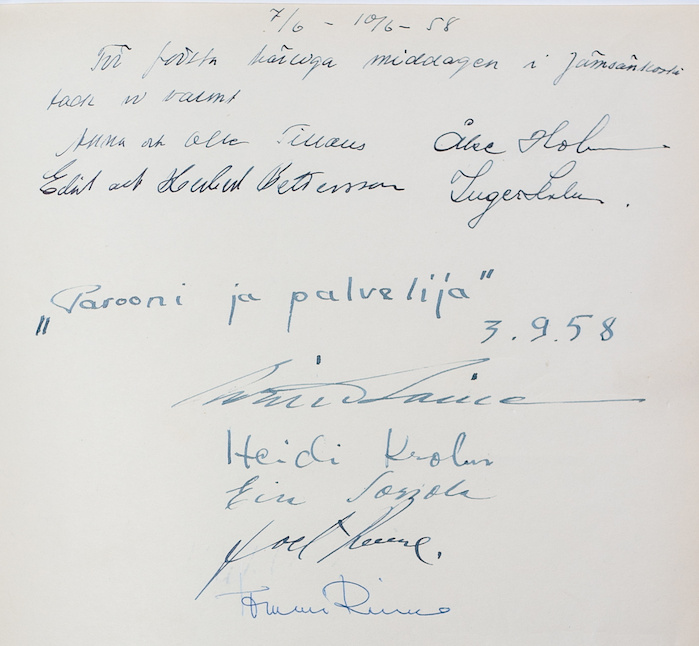 7/6 - 10/6 - 58
För första härliga middagen i Jämsänkoski
tack vi varmt
Anna och Olle Tillaus Åke Holm
Edit och Herbert Pettersson Inger Holm.
"Parooni ja palvelija"
3.9.58
Heidi Krohn
Joel Rinne.
Tommi Rinne